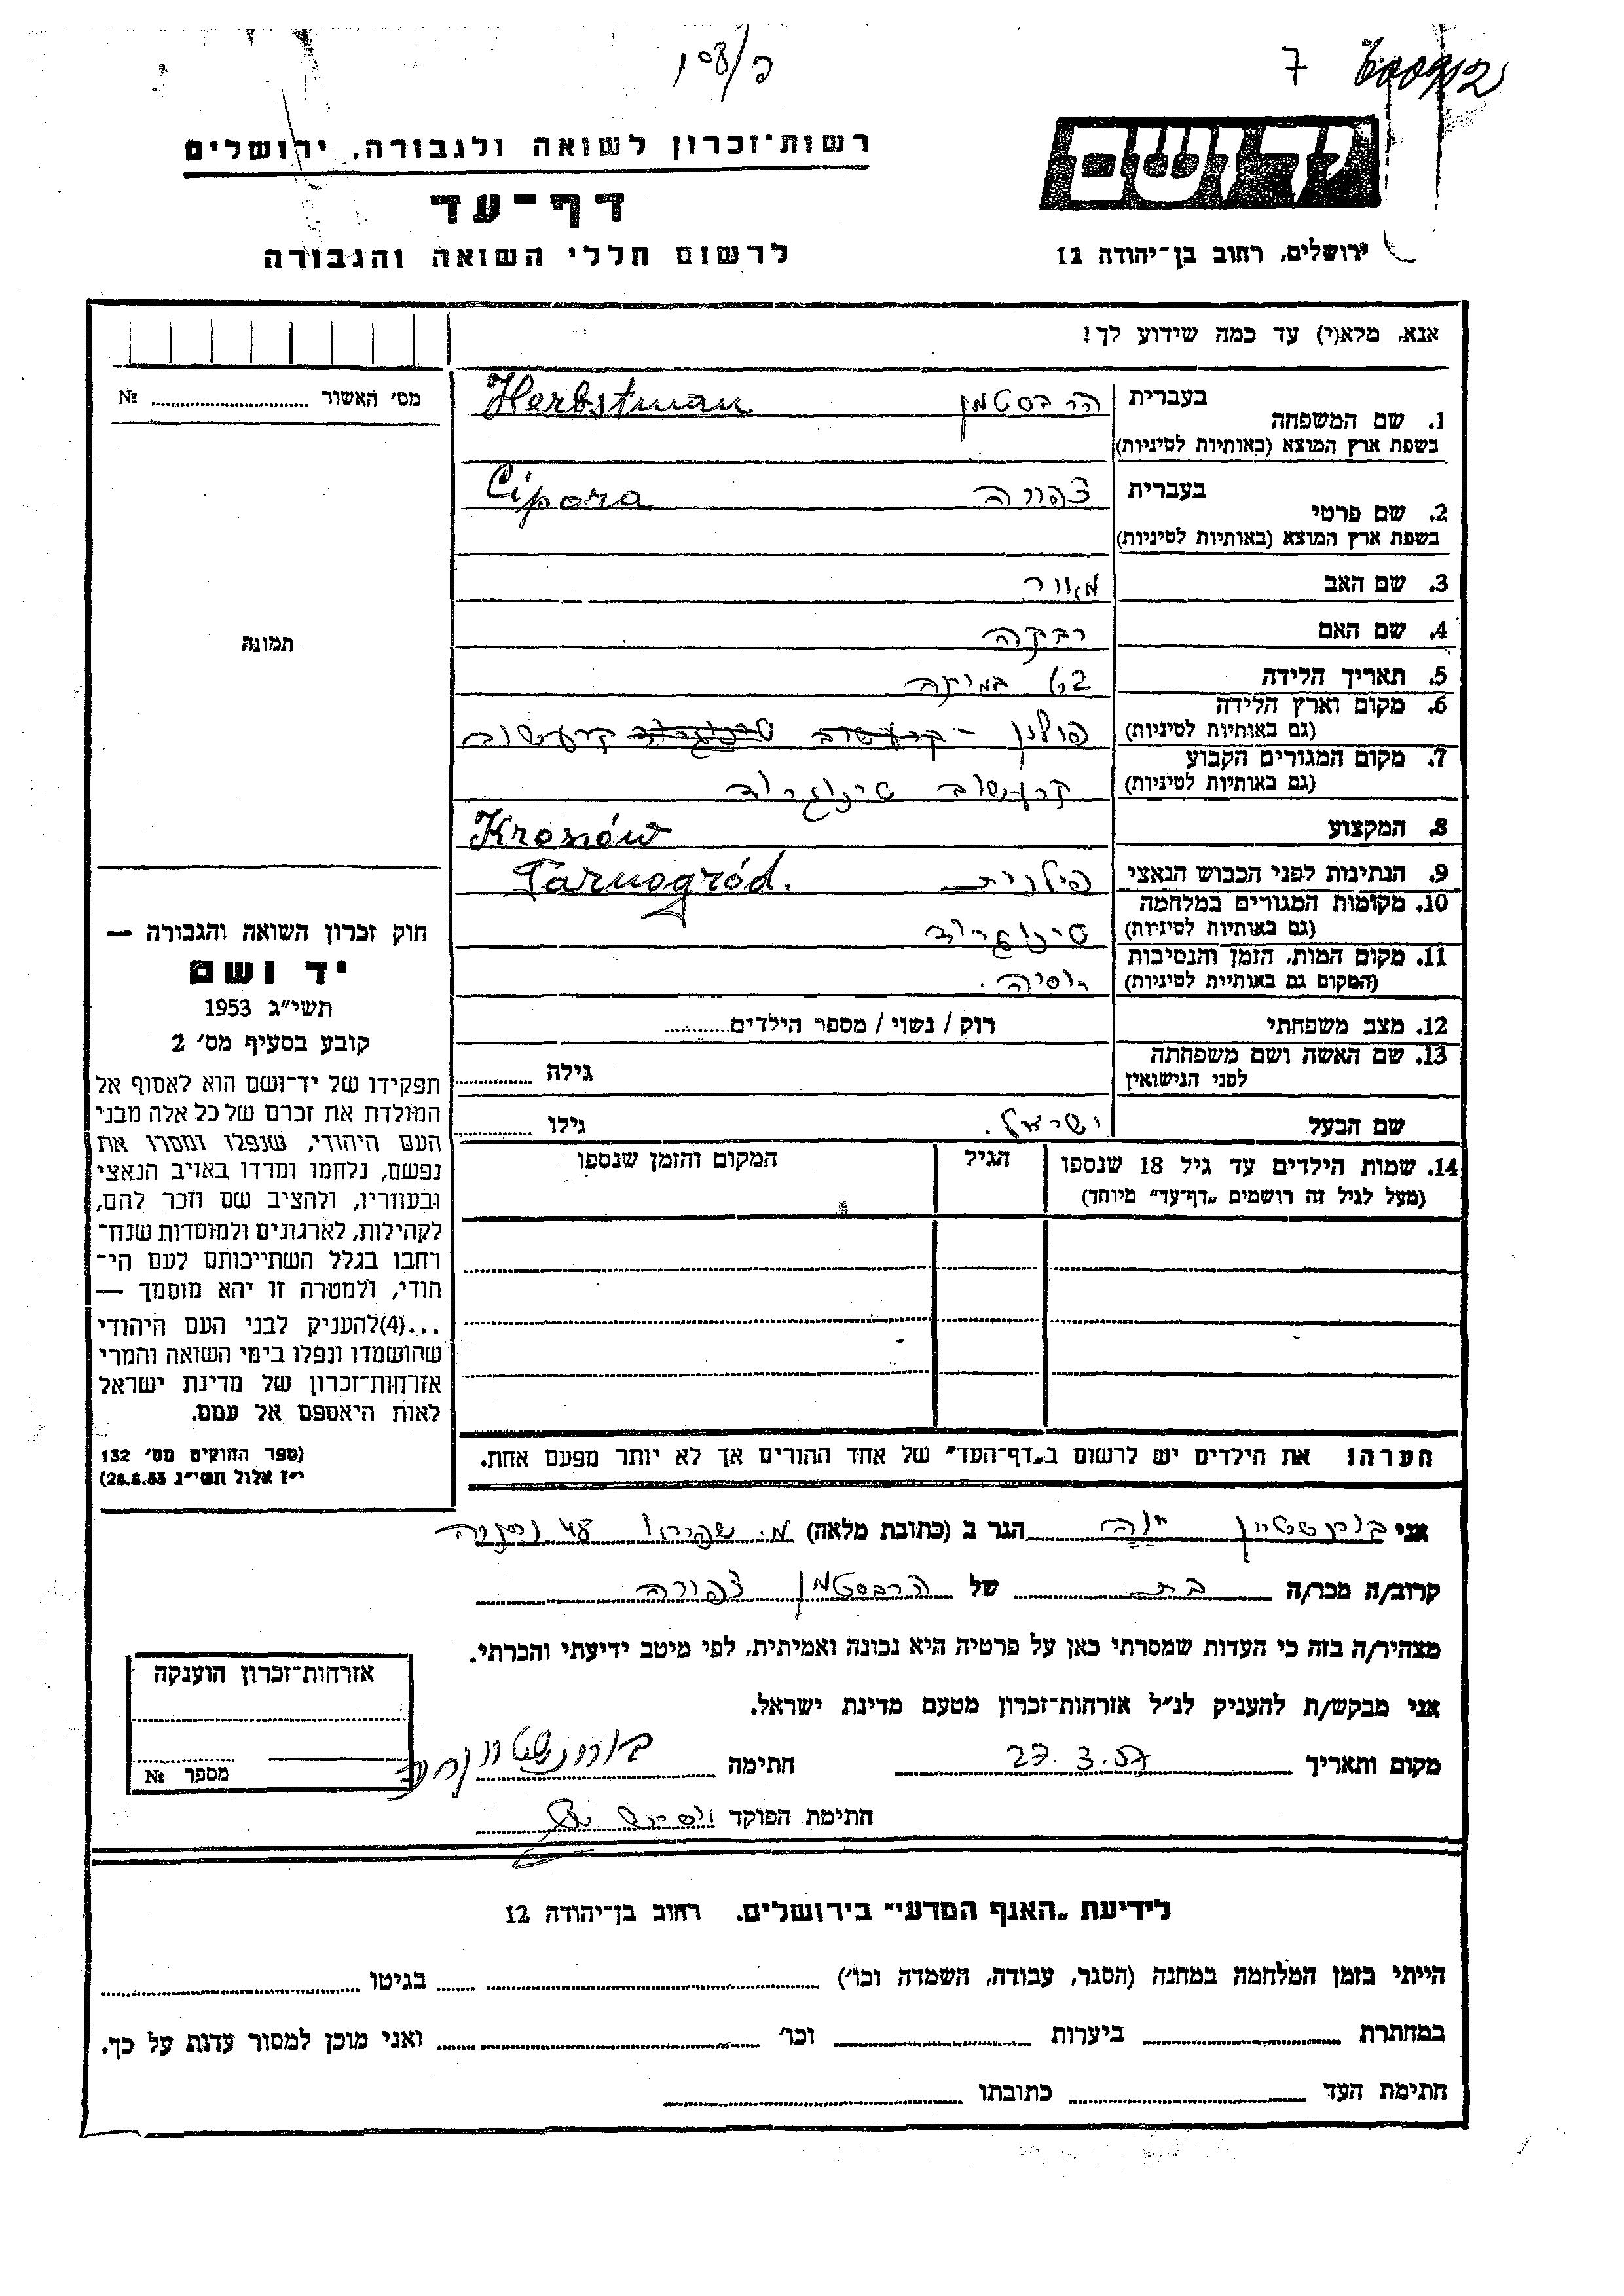 7
רשות־זכרון לשואה ולגבורה, ירושלים
דף־עד
לרשום חללי השואה והגבורה
ירושלים, רחוב בן־יהודה 12
אנא, מלא(י) עד כמה שידוע לך!
מס׳ האשור № ........
1. שם המשפחה בעברית הרבסטמן Herbstman
בשפת ארץ המוצא (באותיות לטיניות)
2. שם פרטי בעברית צפורה Cipora
בשפת ארץ המוצא (באותיות לטיניות)
3. שם האב מאור
4. שם האם רבקה
תמונה
5. תאריך הלידה
6. מקום וארץ הלידה פולין
(גם באותיות לטיניות)
7. מקום המגורים הקבוע
(גם באותיות לטיניות)
8. המקצוע Kresnów
9. הנתינות לפני הכבוש הנאצי פולנית Tarnogród.
10. מקומות המגורים במלחמה
(גם באותיות לטיניות)
11. מקום המות, הזמן והנסיבות רוסיה.
(המקום גם באותיות לטיניות)
12. מצב משפחתי רוק / נשוי / מספר הילדים........
13. שם האשה ושם משפחתה לפני הנישואין גילה ........
שם הבעל ישראל. גילו ........
14. שמות הילדים עד גיל 18 שנספו
(מעל לגיל זה רושמים „דף־עד״ מיוחד)
הגיל
המקום והזמן שנספו
הערה! את הילדים יש לרשום ב„דף־העד״ של אחד ההורים אך לא יותר מפעם אחת.
חוק זכרון השואה והגבורה —
יד ושם
תשי״ג 1953
קובע בסעיף מס׳ 2
תפקידו של יד־ושם הוא לאסוף אל
המולדת את זכרם של כל אלה מבני
העם היהודי, שנפלו ומסרו את
נפשם, נלחמו ומרדו באויב הנאצי
ובעוזריו, ולהציב שם וזכר להם,
לקהילות, לארגונים ולמוסדות שנח־
רחבו בגלל השתייכותם לעם הי־
הודי, ולמטרה זו יהא מוסמך —
...(4)להעניק לבני העם היהודי
שהושמדו ונפלו בימי השואה והמרי
אזרחות־זכרון של מדינת ישראל
לאות היאספם אל עמם.
(ספר החוקים מס׳ 132
י״ז אלול תשי״ג 28.8.53)
אני בורנשטיין חוה הגר ב (כתובת מלאה) מ. שפירא 48
קרוב/ה מכר/ה בת של הרבסטמן צפורה
מצהיר/ה בזה כי העדות שמסרתי כאן על פרטיה היא נכונה ואמיתית, לפי מיטב ידיעתי והכרתי.
אני מבקש/ת להעניק לנ״ל אזרחות־זכרון מטעם מדינת ישראל.
מקום ותאריך 27.3.57 חתימה בורנשטיין חוה
חתימת הפוקד
אזרחות־זכרון הוענקה
מספר №
לידיעת „האגף המדעי״ בירושלים, רחוב בן־יהודה 12
הייתי בזמן המלחמה במחנה (הסגר, עבודה, השמדה וכו׳) ........ בגיטו ........
במחתרת ........ ביערות ........ וכו׳ ........ ואני מוכן למסור עדות על כך.
חתימת העד ........ כתובתו ........